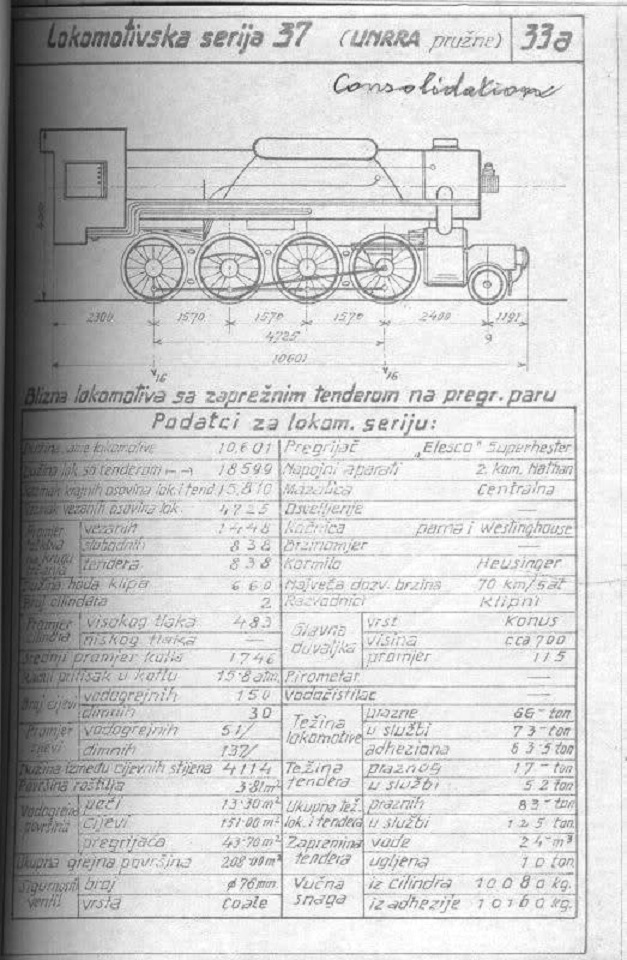 Lokomotivska serija 37 (UNRRA pružne) 33a
Consolidation
2300 1570 1570 1570 2400 1191
4725 9
10601
16 16
Blizna lokomotiva sa zaprežnim tenderom na pregr. paru
Podatci za lokom. seriju:
Dužina same lokomotive 10.601 Pregrijač „Elesco" Superhester
Dužina lok. sa tenderom 18599 Napojni aparati 2 kom. Nathan
krajnih osovina lok. i tend 15.810 Mazalica Centralna
vezanih osovina lok. 4725 Osvetljenje —
Promjer vezanih 1448 Kočnica parna i Westinghouse
slobodnih 838 Brzinomjer —
tendera 838 Kormilo Heusinger
Dužina hoda klipa 660 Najveća dozv. brzina 70 km/sat
Broj cilindara 2 Razvodnici Klipni
Promjer cilindra visokog tlaka 483 Glavna duvaljka vrst Konus
niskog tlaka — visina cca 700
Srednji promjer kotla 1746 promjer 115
Radni pritisak u kotlu 15.8 atm. Pirometar —
Broj cijevi vodogrejnih 150 Vodočistilac —
dimnih 30 Težina lokomotive prazne 66- ton
Promjer cijevi vodogrejnih 51/ u službi 73- ton
dimnih 137/ adheziona 63.5 ton
Dužina između cijevnih stijena 4114 Težina tendera praznog 17- ton
Površina roštilja 3.81m² u službi 52 ton
Vodogrejna površina peći 13.30m² Ukupna tež. lok. i tendera praznih 83- ton
cijevi 151.00m² u službi 125 ton
pregrijača 43.70m² Zapremina tendera vode 24- m³
Ukupna grejna površina 208.00m² ugljena 10 ton
Sigurnosni ventil broj ø76mm Vučna snaga iz cilindra 10080 kg.
vrsta Coale iz adhezije 10160 kg.